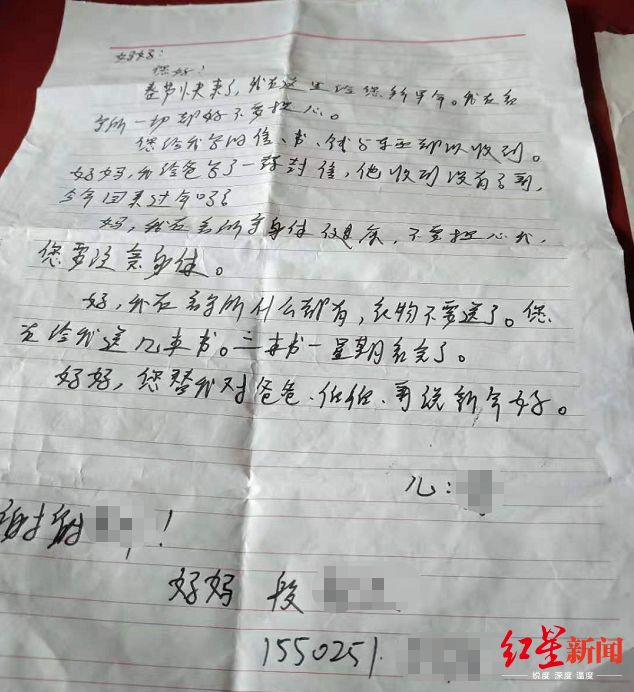 妈妈：
您好！
春节快来了，我在这里给您拜早年。我在看
守所一切都好不要担心。
您给我写的信、书、钱与东西都以收到。
妈妈，我给爸写了一封信，他收到没有了哥，
今年回来过年吗？
妈，我在看所守身体健康，不要担心我，
您要注意身体。
妈，我在看守所什么都有，衣物不要送了。您
在给我送几本书。三本书一星期看完了。
妈妈，您替我对爸爸、伯伯、哥说新年好。
儿：
谢谢 ！
妈妈 段
1550251
红星新闻
锐度 深度 温度